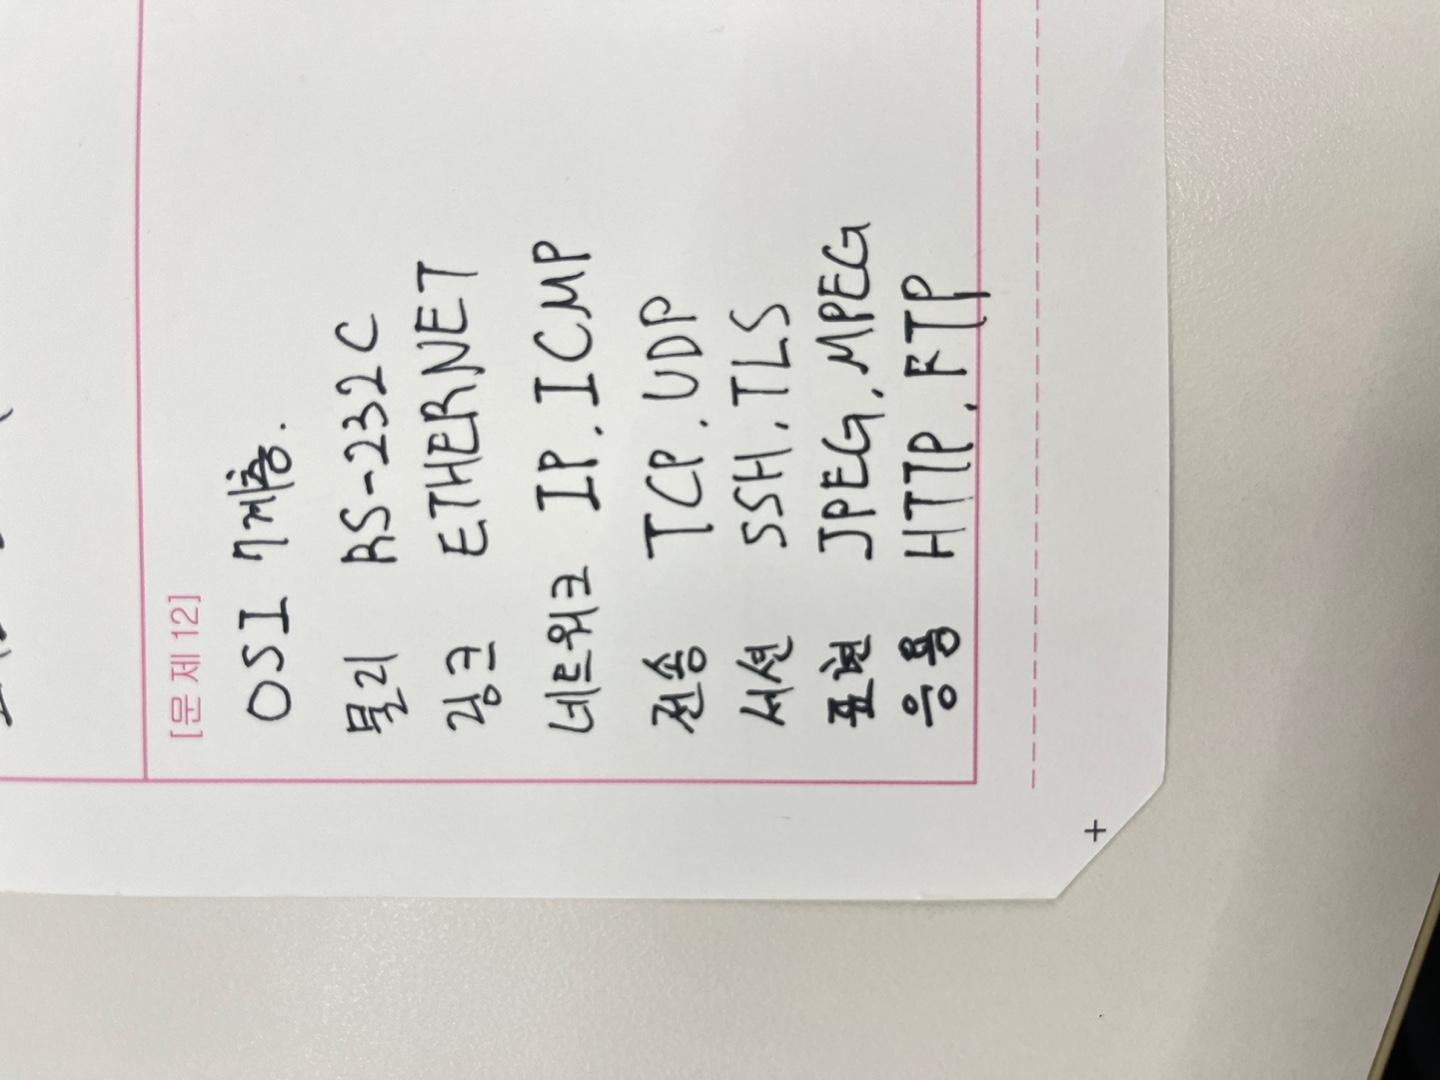 [문 제 12]
OSI 7계층.
물리 RS-232C
링크 ETHERNET
네트워크 IP. ICMP
전송 TCP. UDP
세션 SSH. TLS
표현 JPEG. MPEG
응용 HTTP. FTP
+